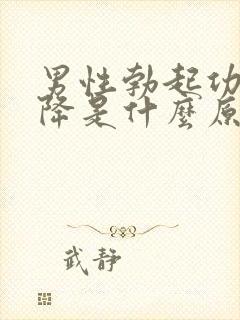 男性勃起功
降是什麼原
武静